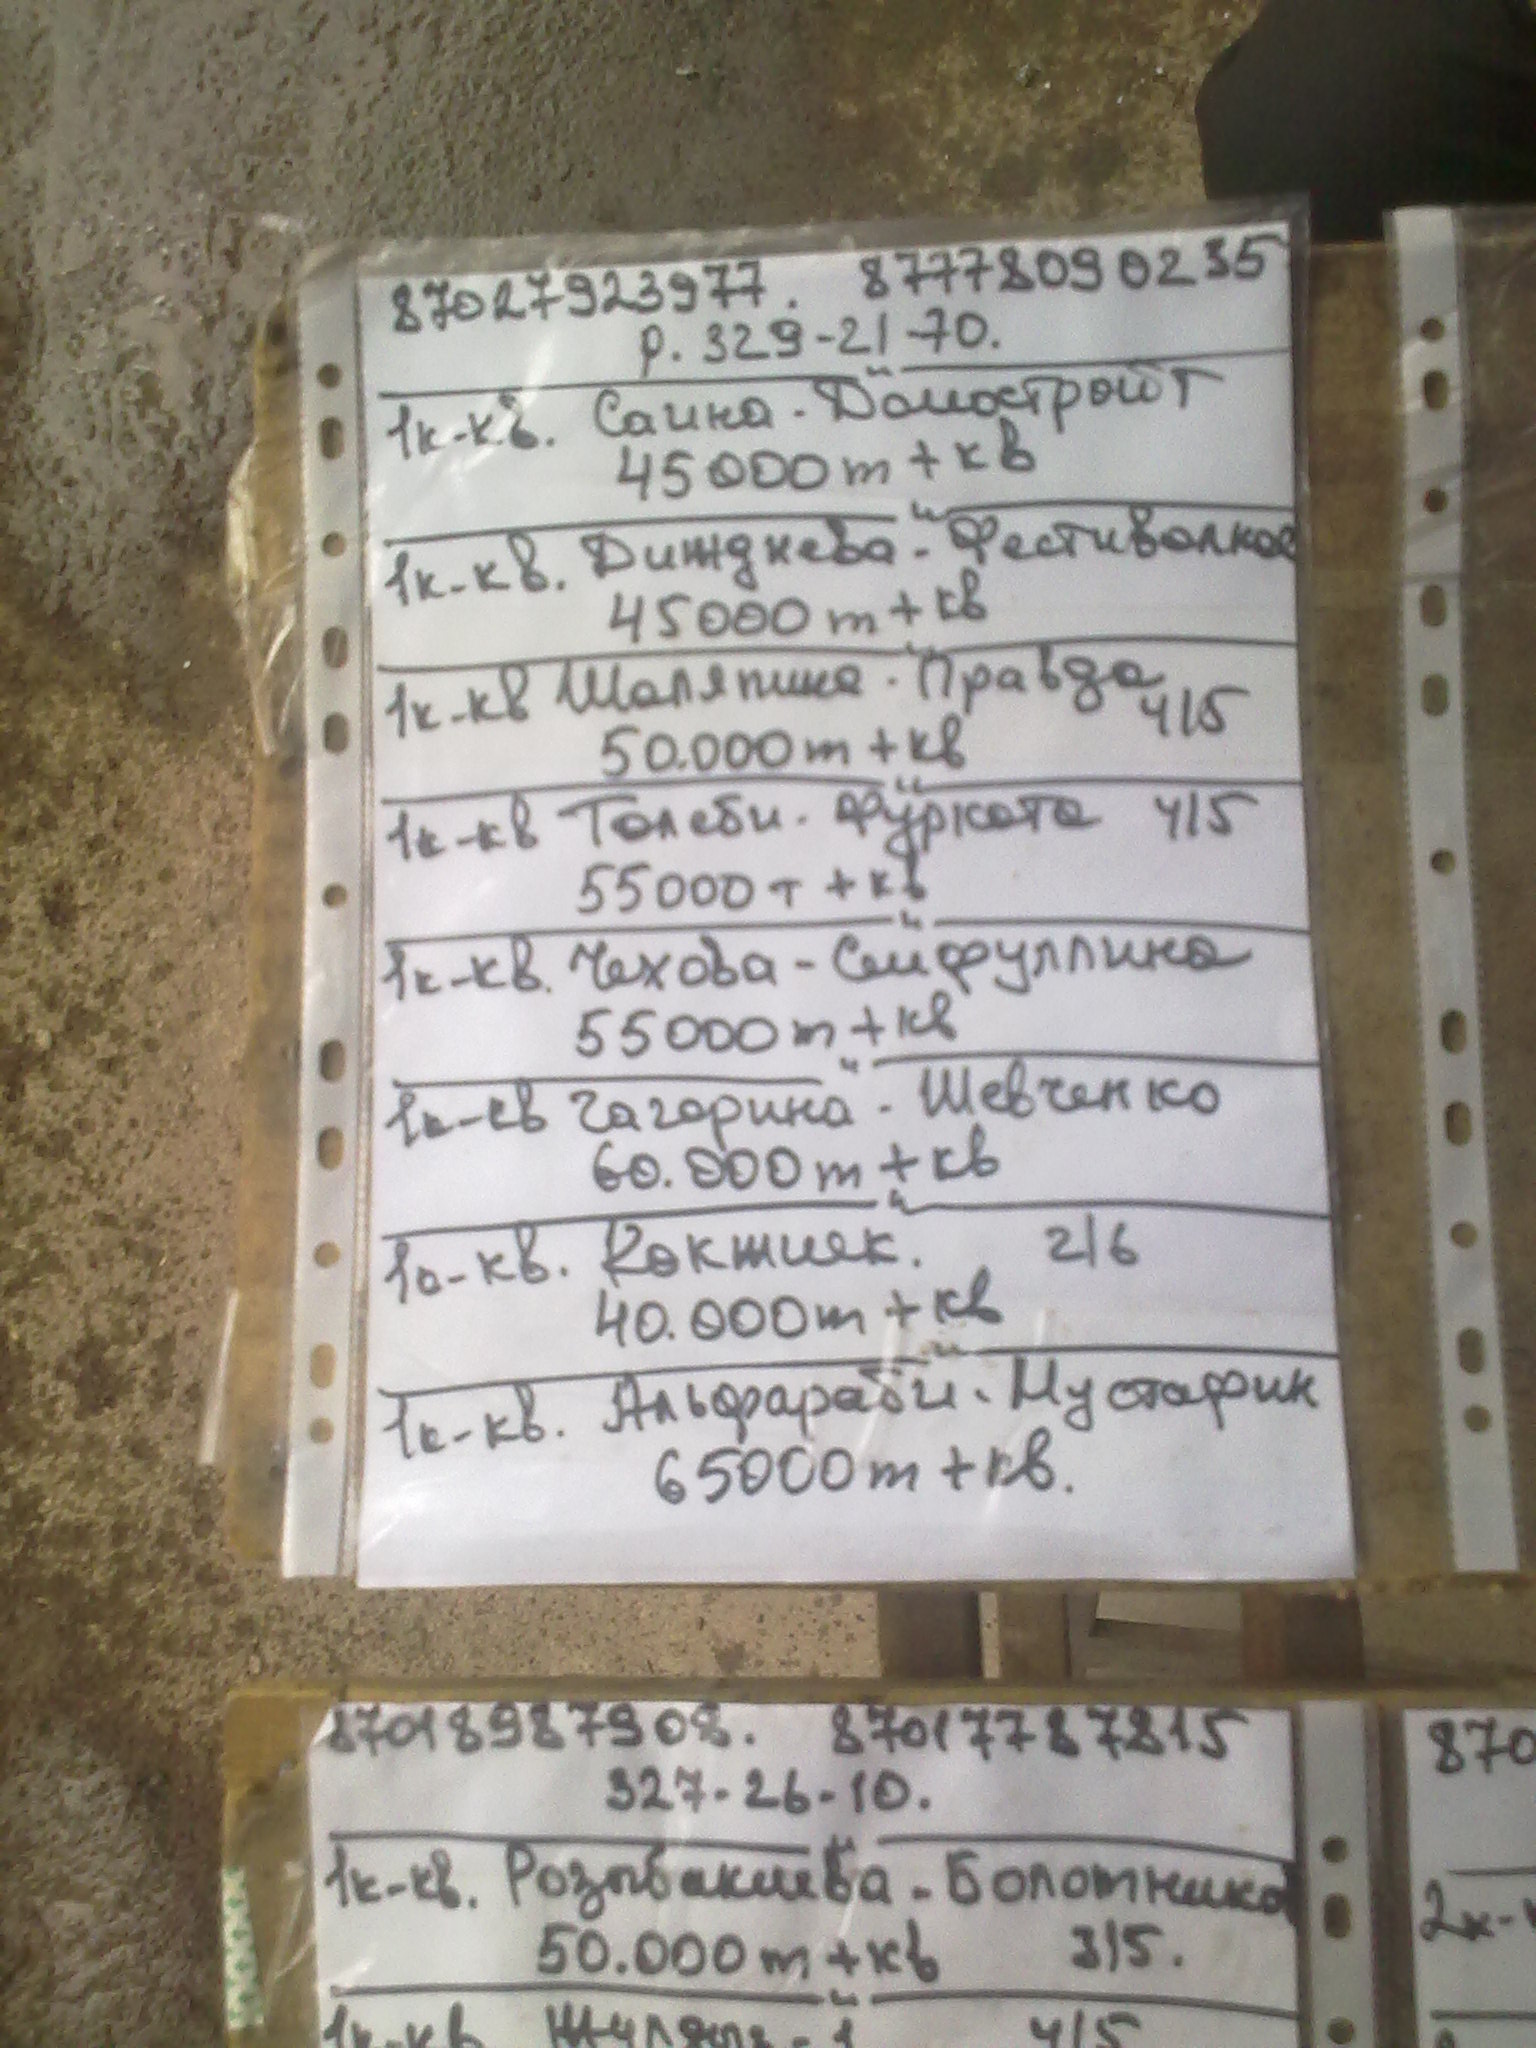 87027923977. 87778090235
р. 329-21-70.
1к-кв. Саина-Домостроит
45000т+кв
1к-кв. Дижднева-Фестивалная
45000т+кв
1к-кв Шаляпина-Правда 4/5
50.000т+кв
1к-кв Толеби-Фурката 4/5
55000т+кв
1к-кв. Чехова-Сейфуллина
55000т+кв
1к-кв Гагарина-Шевченко
60.000т+кв
1о-кв. Кокжиек. 2/6
40.000т+кв
1к-кв. Альфараби-Мустафин
65000т+кв.
87018987908. 87017787815
327-26-10.
1к-кв. Розыбакиева-Болотникова
50.000т+кв 3/5.
1к-кв 4/5
870
2к-к